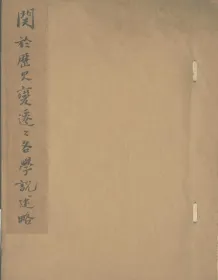 関於歷史變遷之各學說述略